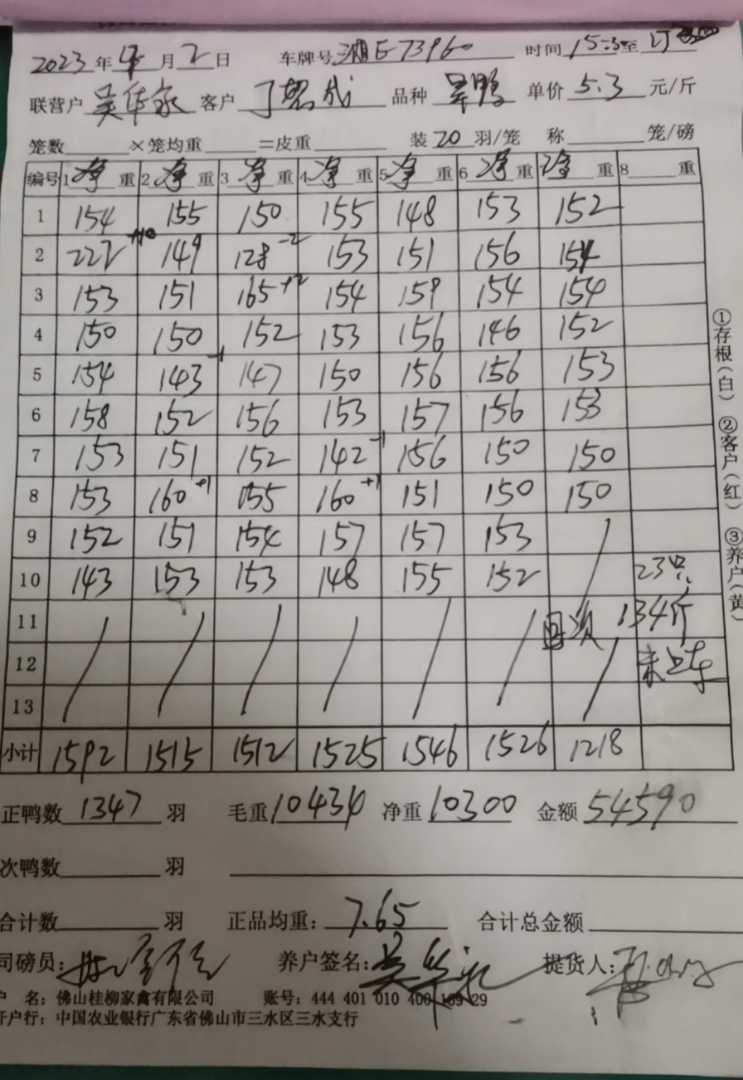 2023年4月2日 车牌号湘E73960 时间15:35至
联营户吴华家 客户丁 成 品种 鸭 单价5.3元/斤
笼数 ×笼均重 =皮重 装20羽/笼 称 笼/磅
编号 1净重 2净重 3净重 4净重 5净重 6净重 净重 8 重
1 154 155 150 155 148 153 152
2 222+10 149 128-2 153 151 156 154
3 153 151 165+2 154 159 154 154
4 150 150 152 153 156 146 152
5 154 143-1 147 150 156 156 153
6 158 152 156 153 157 156 153
7 153 151 152 142-1 156 150 150
8 153 160+1 155 160+1 151 150 150
9 152 151 154 157 157 153
10 143 153 153 148 155 152 23只
11 134斤
12 未上车
13
小计 1592 1515 1512 1525 1546 1526 1218
正鸭数1347羽 毛重10434 净重10300 金额54590
次鸭数 羽
合计数 羽 正品均重：7.65 合计总金额
司磅员： 养户签名：吴华家 提货人：
户 名：佛山桂柳家禽有限公司 账号：444 401 010 400 169 29
开户行：中国农业银行广东省佛山市三水区三水支行
①存根（白） ②客户（红） ③养户（黄）